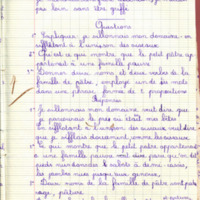 pas loin sans être griffé.
Questions
1° Expliquez : je sillonnais mon domaine, en
sifflotant à l'unisson des oiseaux
2° Qu'est ce qui montre que le petit pâtre ap
partenait à une famille pauvre
3° Donnez deux noms et deux verbes de la
famille de pâtre, employez un de ces mots
dans une phrase formée de 2 propositions
Réponses
1° Je sillonnais mon domaine veut dire que
je parcourais le pré où était mes bêtes
En sifflotant à l'unisson des oiseaux veut dire
que je sifflais doucement comme les oiseaux
2° Ce qui montre que le petit pâtre appartenait
à une famille pauvre c'est parce qu'on dit
pieds nus dans les sabots à demi cassés,
les jambes nues jusqu'aux genoux,
3° Deux noms de la famille de pâtre sont patu
rage, pâture